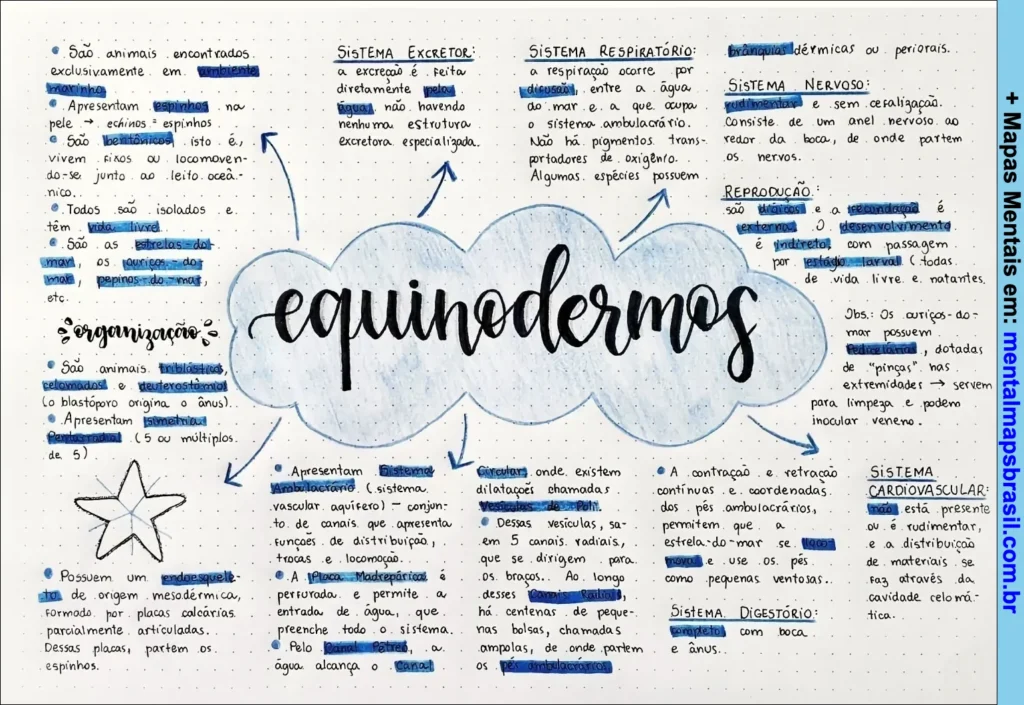 • São animais encontrados
exclusivamente em ambiente
marinho.
• Apresentam espinhos na
pele → echinos = espinhos
• São bentônicos, isto é,
vivem fixos ou locomoven-
do-se junto ao leito oceâ-
nico.
• Todos são isolados e
têm vida livre.
• São as estrelas-do-
mar, os ouriços-do-
mar, pepinos-do-mar,
etc.
organização
• São animais triblásticos,
celomados e deuterostômios
(o blastóporo origina o ânus).
• Apresentam simetria
Pentarradial (5 ou múltiplos
de 5)
• Possuem um endoesquele-
to de origem mesodérmica,
formado por placas calcárias
parcialmente articuladas.
Dessas placas, partem os
espinhos.
SISTEMA EXCRETOR:
a excreção é feita
diretamente pela
água, não havendo
nenhuma estrutura
excretora especializada.
SISTEMA RESPIRATÓRIO:
a respiração ocorre por
difusão, entre a água
do mar e a que ocupa
o sistema ambulacrário.
Não há pigmentos trans-
portadores de oxigênio.
Algumas espécies possuem
brânquias dérmicas ou periorais.
SISTEMA NERVOSO:
rudimentar e sem cefalização.
Consiste de um anel nervoso ao
redor da boca, de onde partem
os nervos.
REPRODUÇÃO:
são dióicos e a fecundação é
externa. O desenvolvimento
é indireto, com passagem
por estágio larval (todas
de vida livre e natantes.
Obs.: Os ouriços-do-
mar possuem
Pedicelárias, dotadas
de "pinças" nas
extremidades → servem
para limpeza e podem
inocular veneno.
equinodermos
• Apresentam Sistema
Ambulacrário (sistema
vascular aquífero) – conjun-
to de canais que apresenta
funções de distribuição,
trocas e locomoção.
• A Placa Madrepórica é
perfurada e permite a
entrada de água, que
preenche todo o sistema.
• Pelo Canal Pétreo, a
água alcança o Canal
Circular, onde existem
dilatações chamadas
Vesículas de Poli.
• Dessas vesículas, sa-
em 5 canais radiais,
que se dirigem para
os braços. Ao longo
desses Canais Radiais,
há centenas de peque-
nas bolsas, chamadas
ampolas, de onde partem
os pés ambulacrários.
• A contração e retração
contínuas e coordenadas
dos pés ambulacrários,
permitem que a
estrela-do-mar se loco-
mova e use os pés
como pequenas ventosas.
SISTEMA DIGESTÓRIO:
completo, com boca
e ânus.
SISTEMA
CARDIOVASCULAR:
não está presente
ou é rudimentar,
e a distribuição
de materiais se
faz através da
cavidade celomá-
tica.
+ Mapas Mentais em: mentalmapsbrasil.com.br